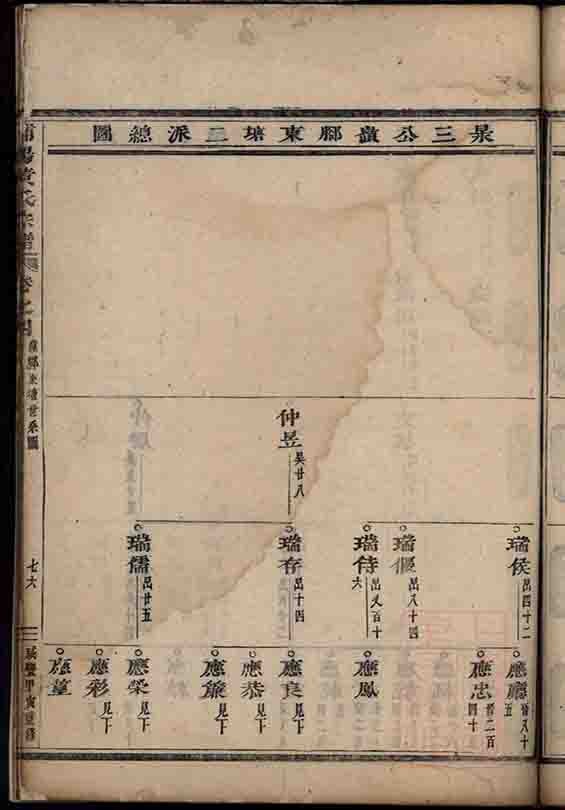 圖總派三塘東腳嶺公三杲
仲昱
吴廿八
瑞侯
昌四十二
瑞偃
昌八十四
瑞侍
昌又百十六
瑞存
昌十四
瑞儒
昌廿五
應廳
晉八十五
應忠
晉二百四十
應鳳
應良
見下
應恭
見下
應爺
見下
應榮
見下
應彩
見下
應董
黃氏宗譜
卷之四
東塘世系圖
七六
咸豐甲寅重修